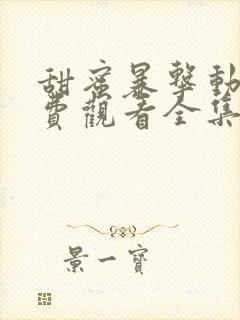 甜蜜暴擊動
費觀看全集
景一寶